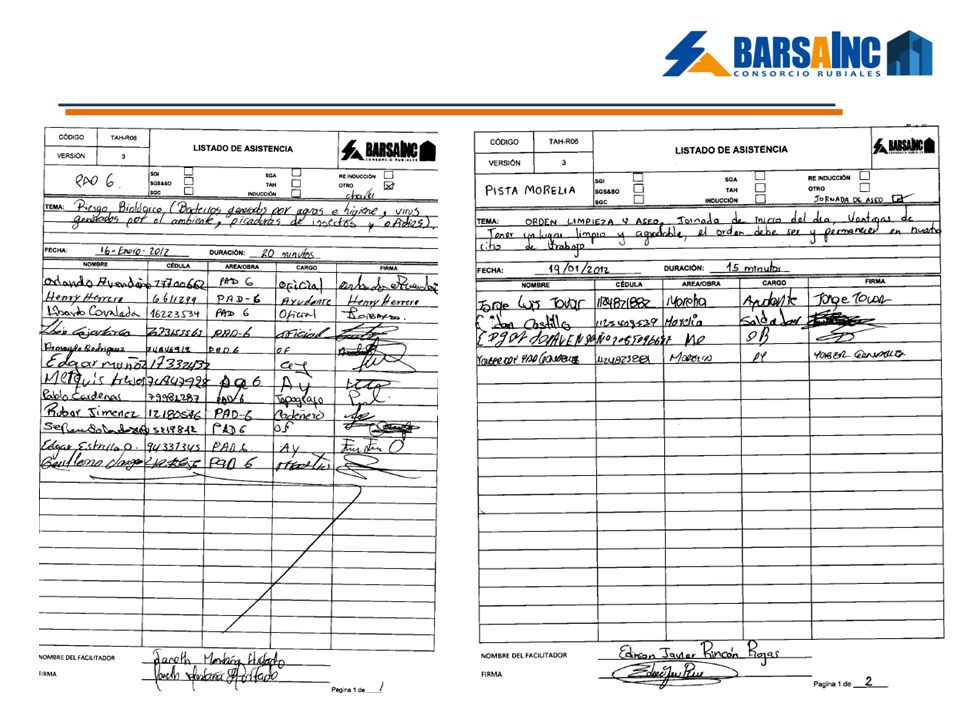 BARSAINC
CONSORCIO RUBIALES
CÓDIGO TAH-R06
VERSIÓN 3
LISTADO DE ASISTENCIA
BARSAINC
CONSORCIO RUBIALES
PAD 6.
SGI
SGS&SO
SGC
SGA
TAH
INDUCCIÓN
RE INDUCCIÓN
OTRO
charla
TEMA: Riesgo Biológico (Bacterias generados por aguas e higiene, virus
generados por el ambiente, picaduras de insectos y ofidios).
FECHA: 16-Enero-2012 DURACIÓN: 20 minutos
NOMBRE CÉDULA AREA/OBRA CARGO FIRMA
Orlando 77700662 PAD 6 oficial
Henry Herrera 6611299 PAD-6 Ayudante Henry Herrera
Libardo Covaleda 16223534 PAD 6 Oficial
PAD-6 oficial
Rodriguez PAD 6 OF
Edgar muñoz 17332452 ay
74847928 Pad 6 Ay
Pablo Cardenas 79981287 PAD-6 Topografo
Rubar Jimenez 12180546 PAD-6 Cadenero
PAD 6 OF
Edgar Estrella O. 94337345 PAD.6 AY
PAD 6
NOMBRE DEL FACILITADOR Janeth Montaña Hurtado
FIRMA Janeth Montaña Hurtado
Pagina 1 de 1
CÓDIGO TAH-R06
VERSIÓN 3
LISTADO DE ASISTENCIA
BARSAINC
CONSORCIO RUBIALES
PISTA MORELIA
SGI
SGS&SO
SGC
SGA
TAH
INDUCCIÓN
RE INDUCCIÓN
OTRO
JORNADA DE ASEO
TEMA: ORDEN LIMPIEZA Y ASEO, Jornada de Inicio del dia, Vantajas de
Tener un lugar limpio y agradable, el orden debe ser y permanecer en nuestro
citio de trabajo
FECHA: 19/01/2012 DURACIÓN: 15 minutos
NOMBRE CÉDULA AREA/OBRA CARGO FIRMA
Jorge Luis Tovar 1124821882 Morelia Ayudante Jorge Tovar
Castillo Morelia Soldador
MO OB
MORELIA OY YOBER GONZALEZ
NOMBRE DEL FACILITADOR Edinson Javier Rincón Rojas
FIRMA
Pagina 1 de 2